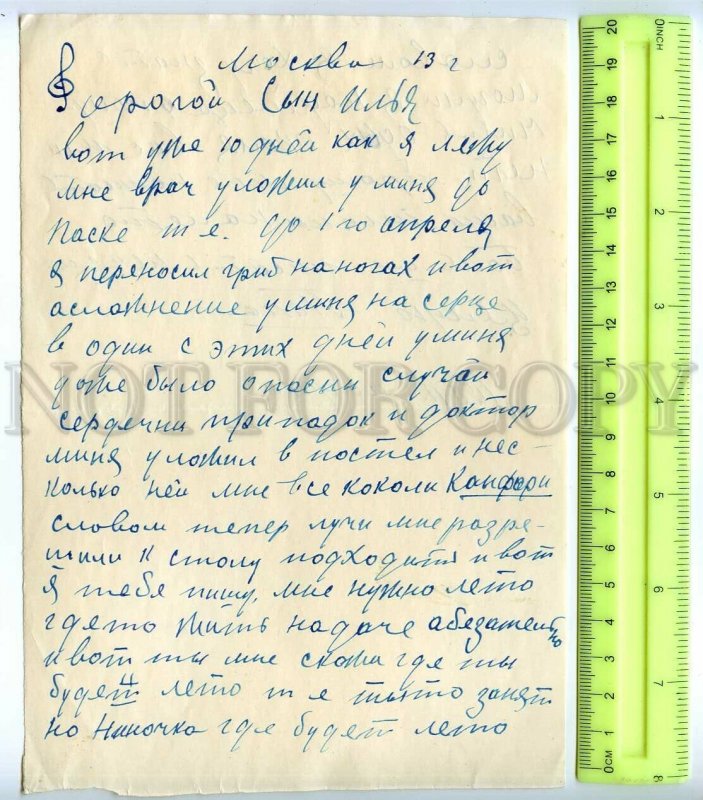 Москва 13 г
Дорогой Сын Илья
вот уже 10 дней как я лежу
мне врач уложил у миня до
паске т е. до 1 го апреля
я переносил грип на ногах и вот
асложнение у миня на серце
в один с этих дней у миня
даже было опасни случай
сердечни припадок и доктор
миня уложил в постел и нес-
колько ней мне все кололи Камфари
словом тепер лучи мне разре-
шили к столу подходить и вот
я тебе пишу, мне нужно лето
где то жить на даче абезательно
и вот ты мне скажи где ты
будет лето т е ты то занят
но Ниночка где будет лето
NOT FOR COPY
INCH
1
2
3
4
5
6
7
8
20
19
18
17
16
15
14
13
12
11
10
9
8
7
6
5
4
3
2
1
0CM